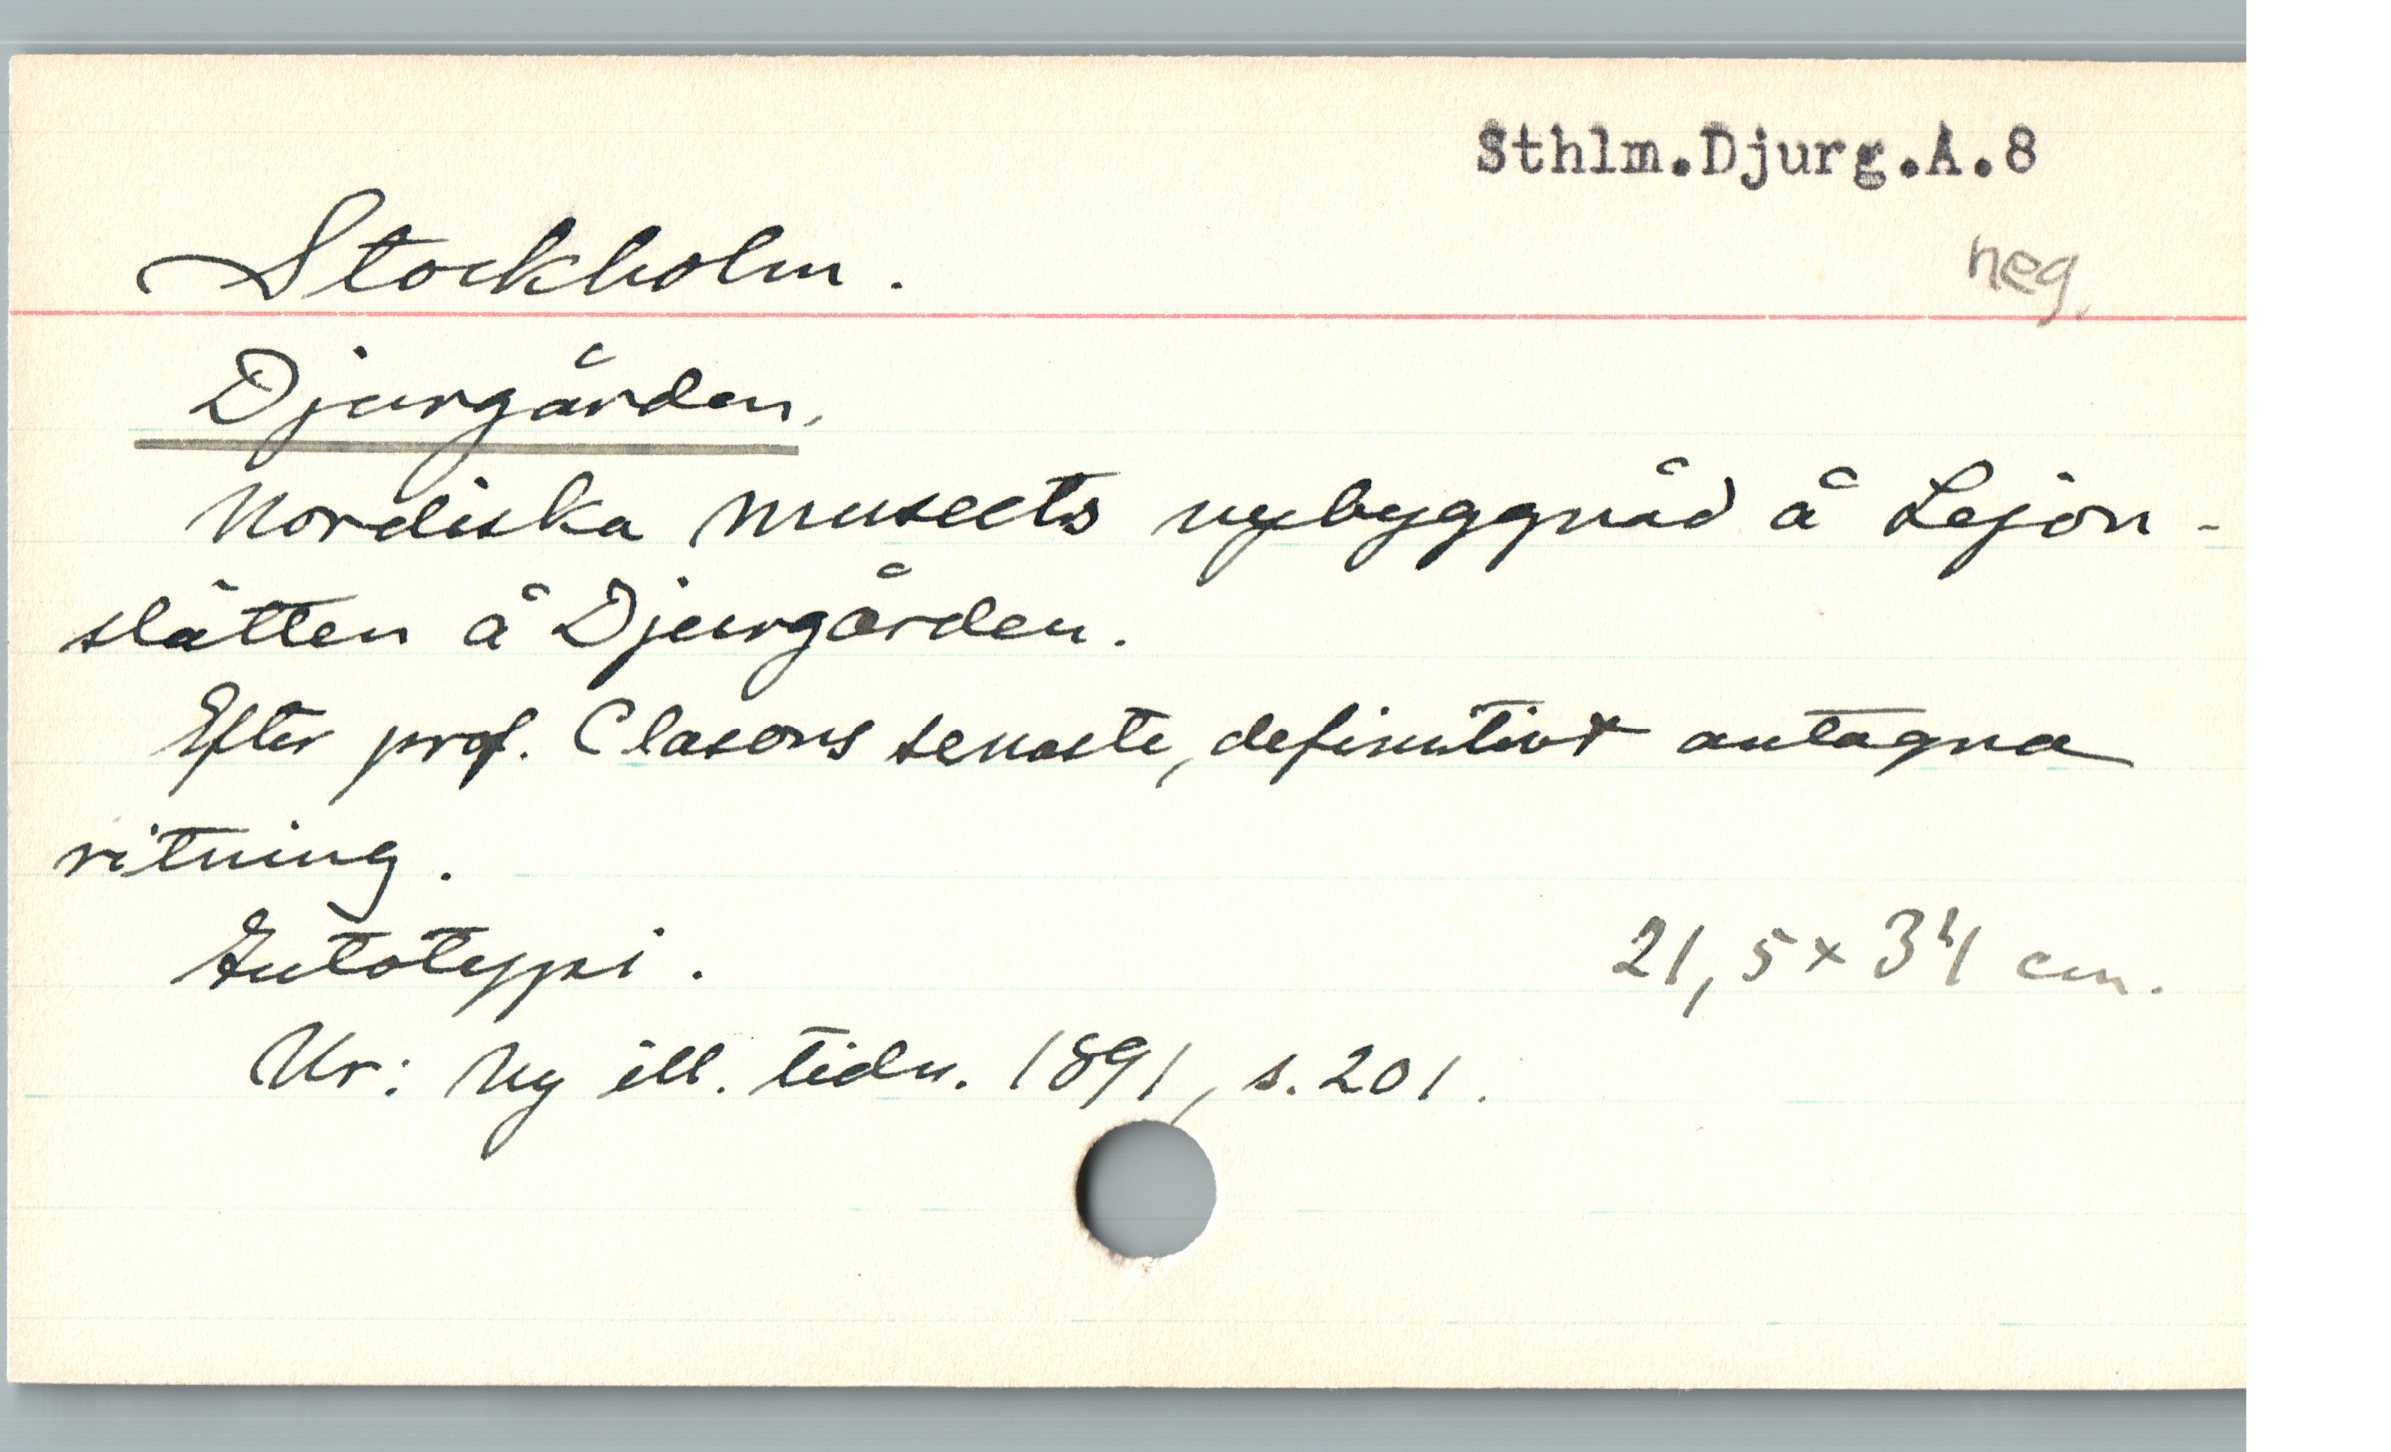 Sthlm.Djurg.A.8
neg.
Stockholm.
Djurgården.
Nordiska museets nybyggnad å Lejon-
slätten å Djurgården.
Efter prof. Clasons senaste, definitivt antagna
ritning.
Autotypi. 21,5 x 34 cm.
Ur: Ny ill. tidn. 1891, s. 201.